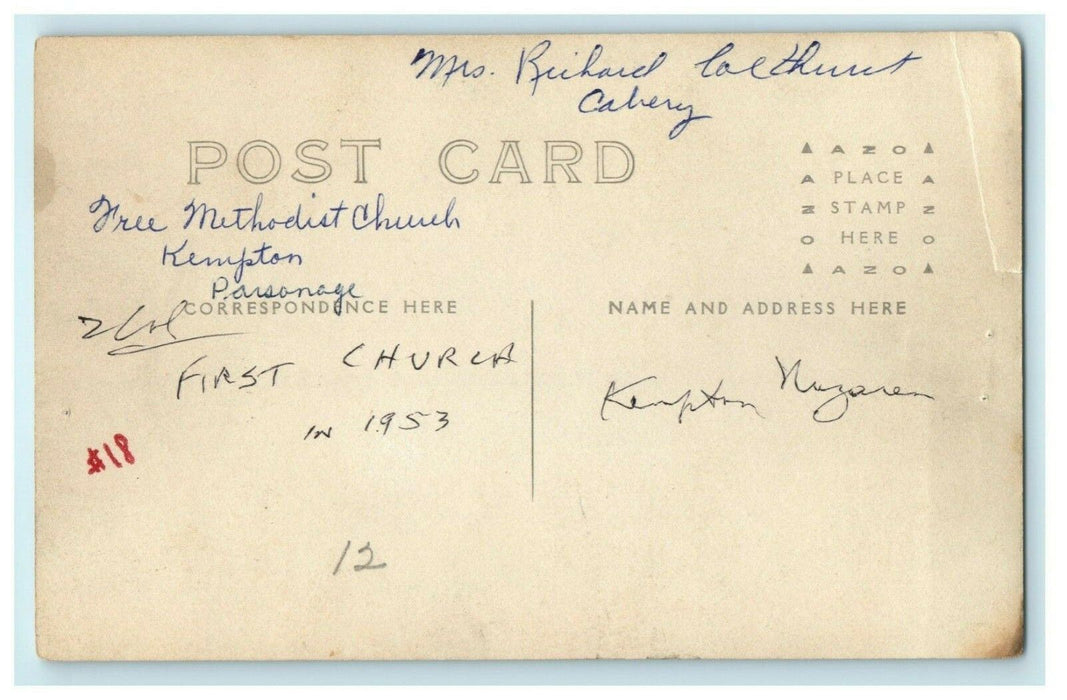 Mrs. Richard
Cabery
POST CARD
AZO
PLACE
STAMP
HERE
AZO
Free Methodist Church
Kempton
Parsonage
CORRESPONDENCE HERE
NAME AND ADDRESS HERE
2 Col
FIRST CHURCH
IN 1953
Kempton Nazaren
$18
12